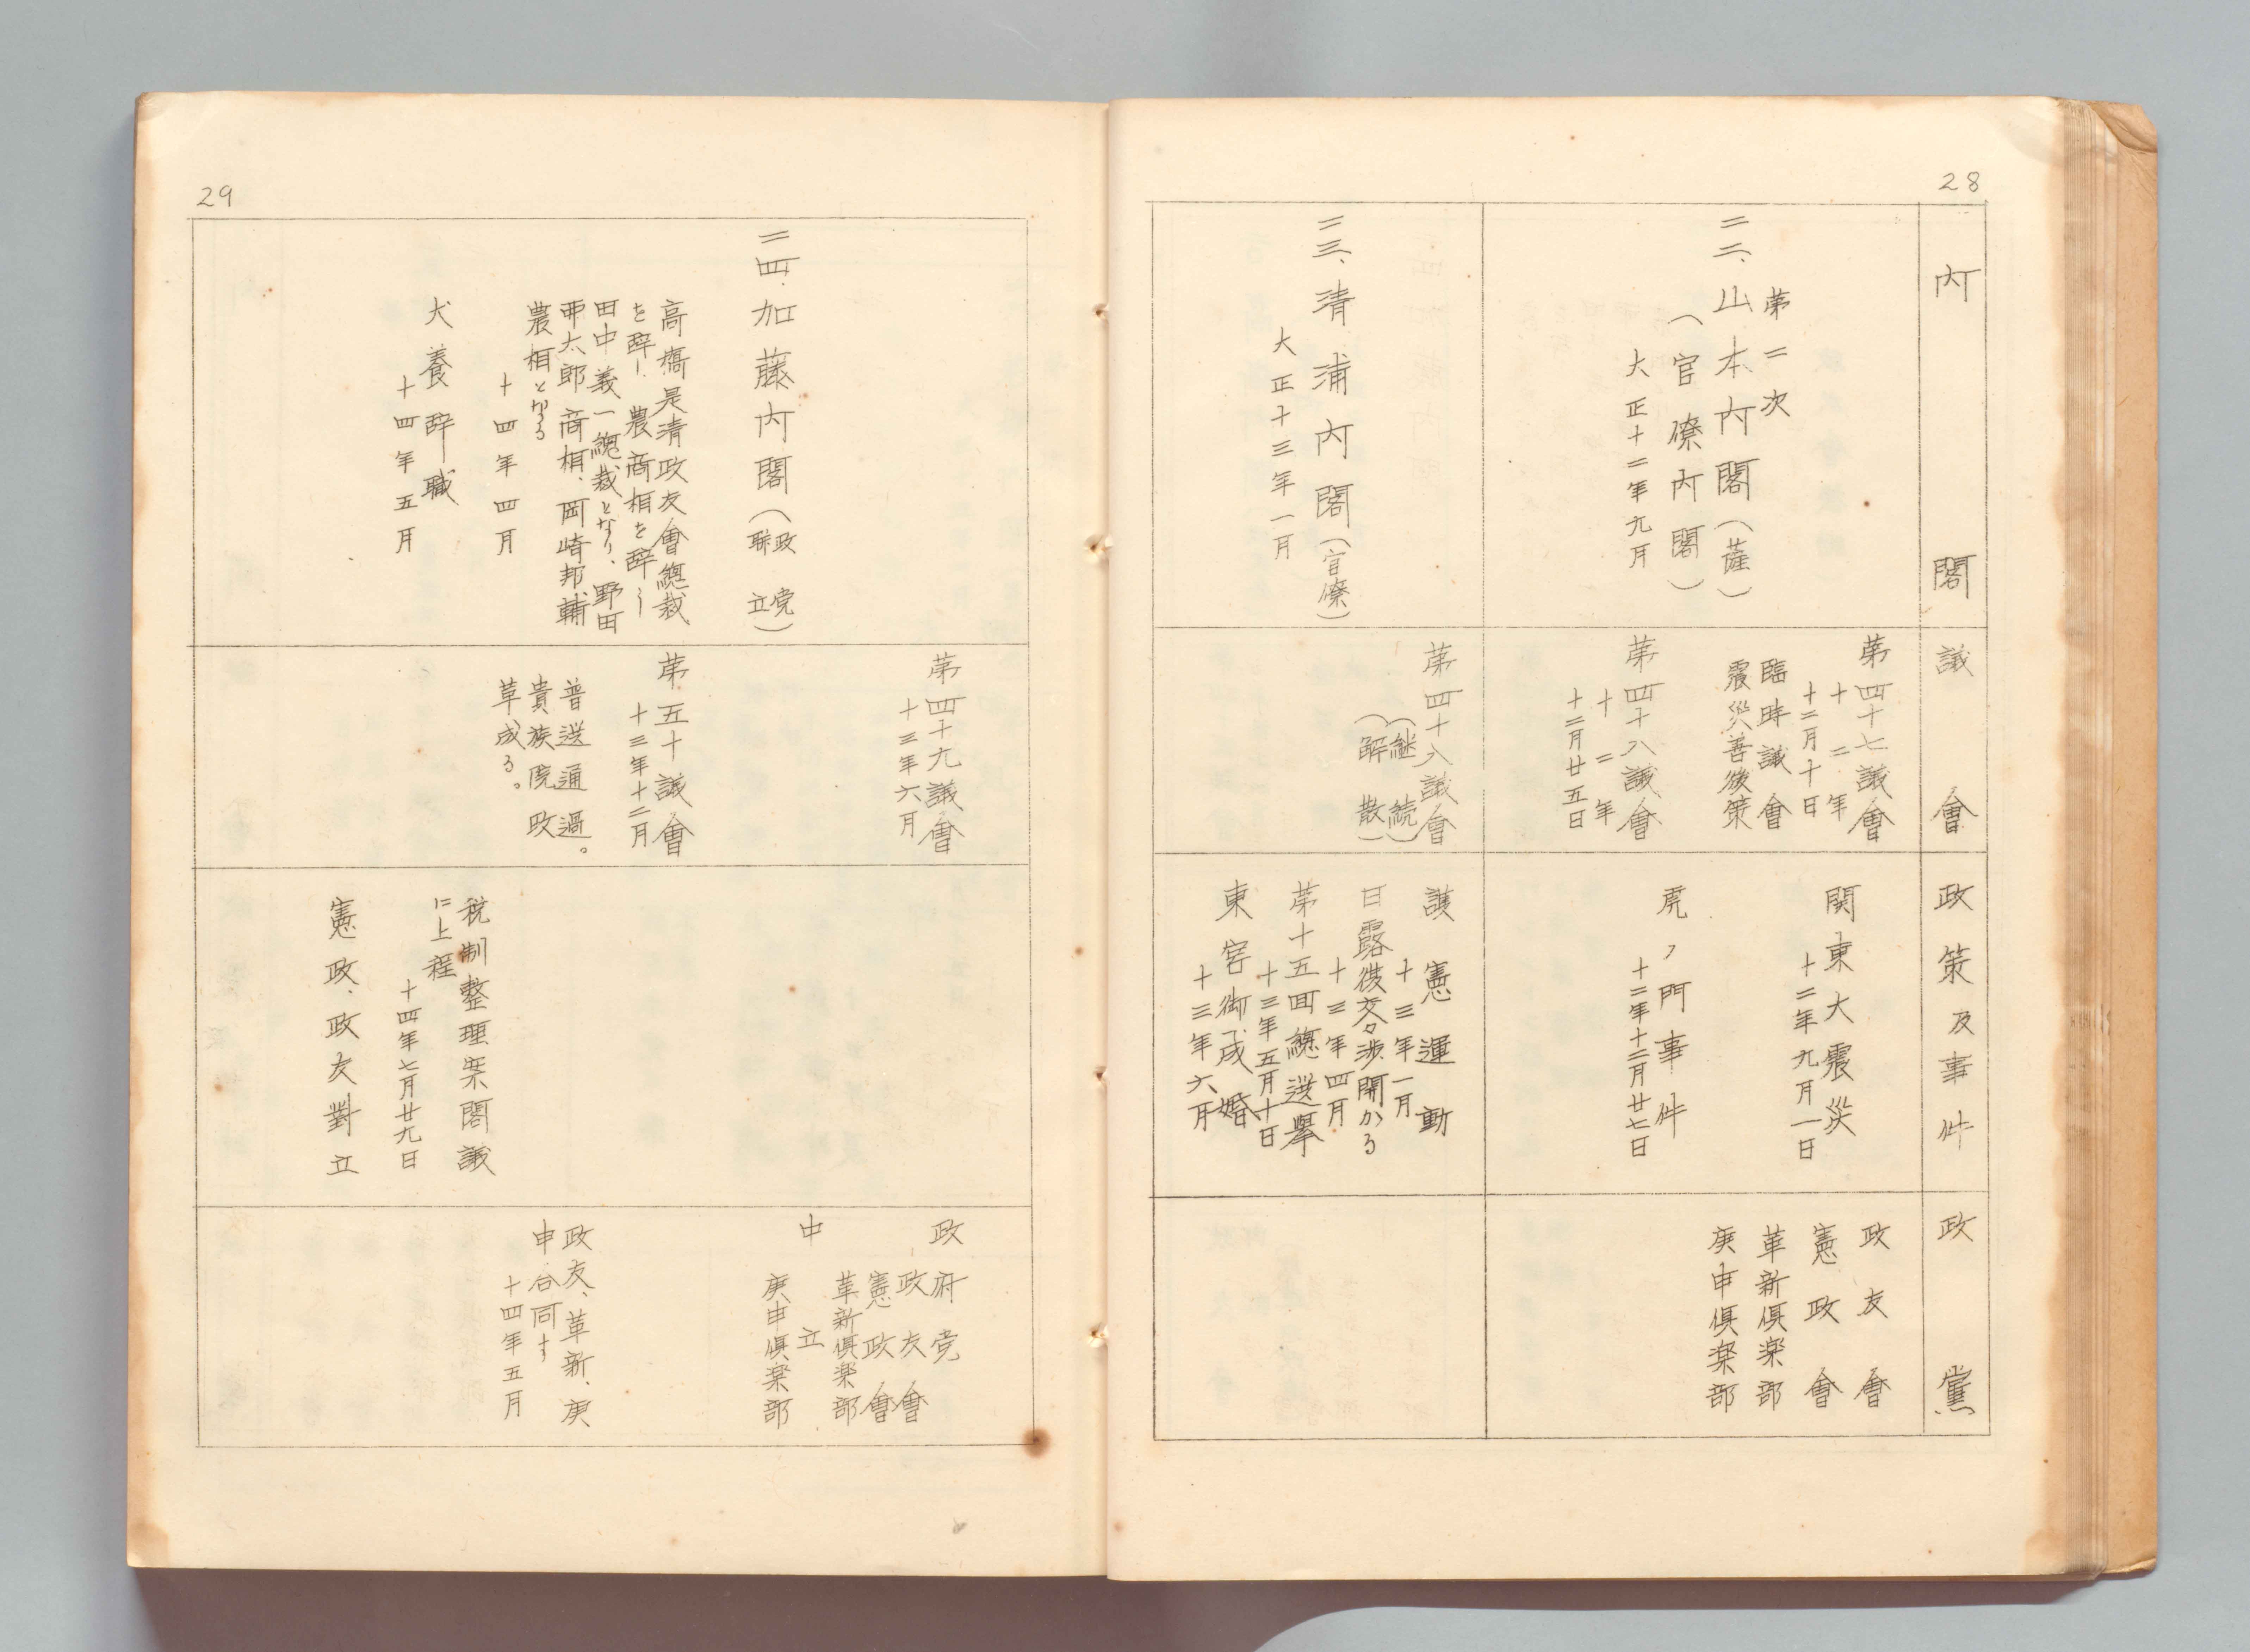 28
內閣
議會
政策及事件
政黨
第二次
二二、山本內閣（薩）
（官僚內閣）
大正十二年九月
第四十七議會
十二年
十二月十日
臨時議會
震災善後策
第四十八議會
十二年
十二月廿五日
関東大震災
十二年九月一日
虎ノ門事件
十二年十二月廿七日
政友會
憲政會
革新倶楽部
庚申倶楽部
二三、清浦內閣（官僚）
大正十三年一月
第四十八議會
（継続）
（解散）
護憲運動
十三年一月
日露後交々渉開かる
十三年四月
第十五回總選擧
十三年五月十日
東宮御成婚
十三年六月
29
二四、加藤内閣（政党聯立）
高橋是清政友會總裁
を辞し、農商相を辞し
田中義一總裁となり、野田
卯太郎商相、岡崎邦輔
農相となる
十四年四月
犬養辞職
十四年五月
第四十九議會
十三年六月
第五十議會
十三年十二月
普選通過。
貴族院改
革成る。
税制整理案閣議
に上程
十四年七月廿九日
憲政、政友對立
政府党
政友會
憲政會
革新倶楽部
中立
庚申倶楽部
政友、革新、庚
申合同す
十四年五月